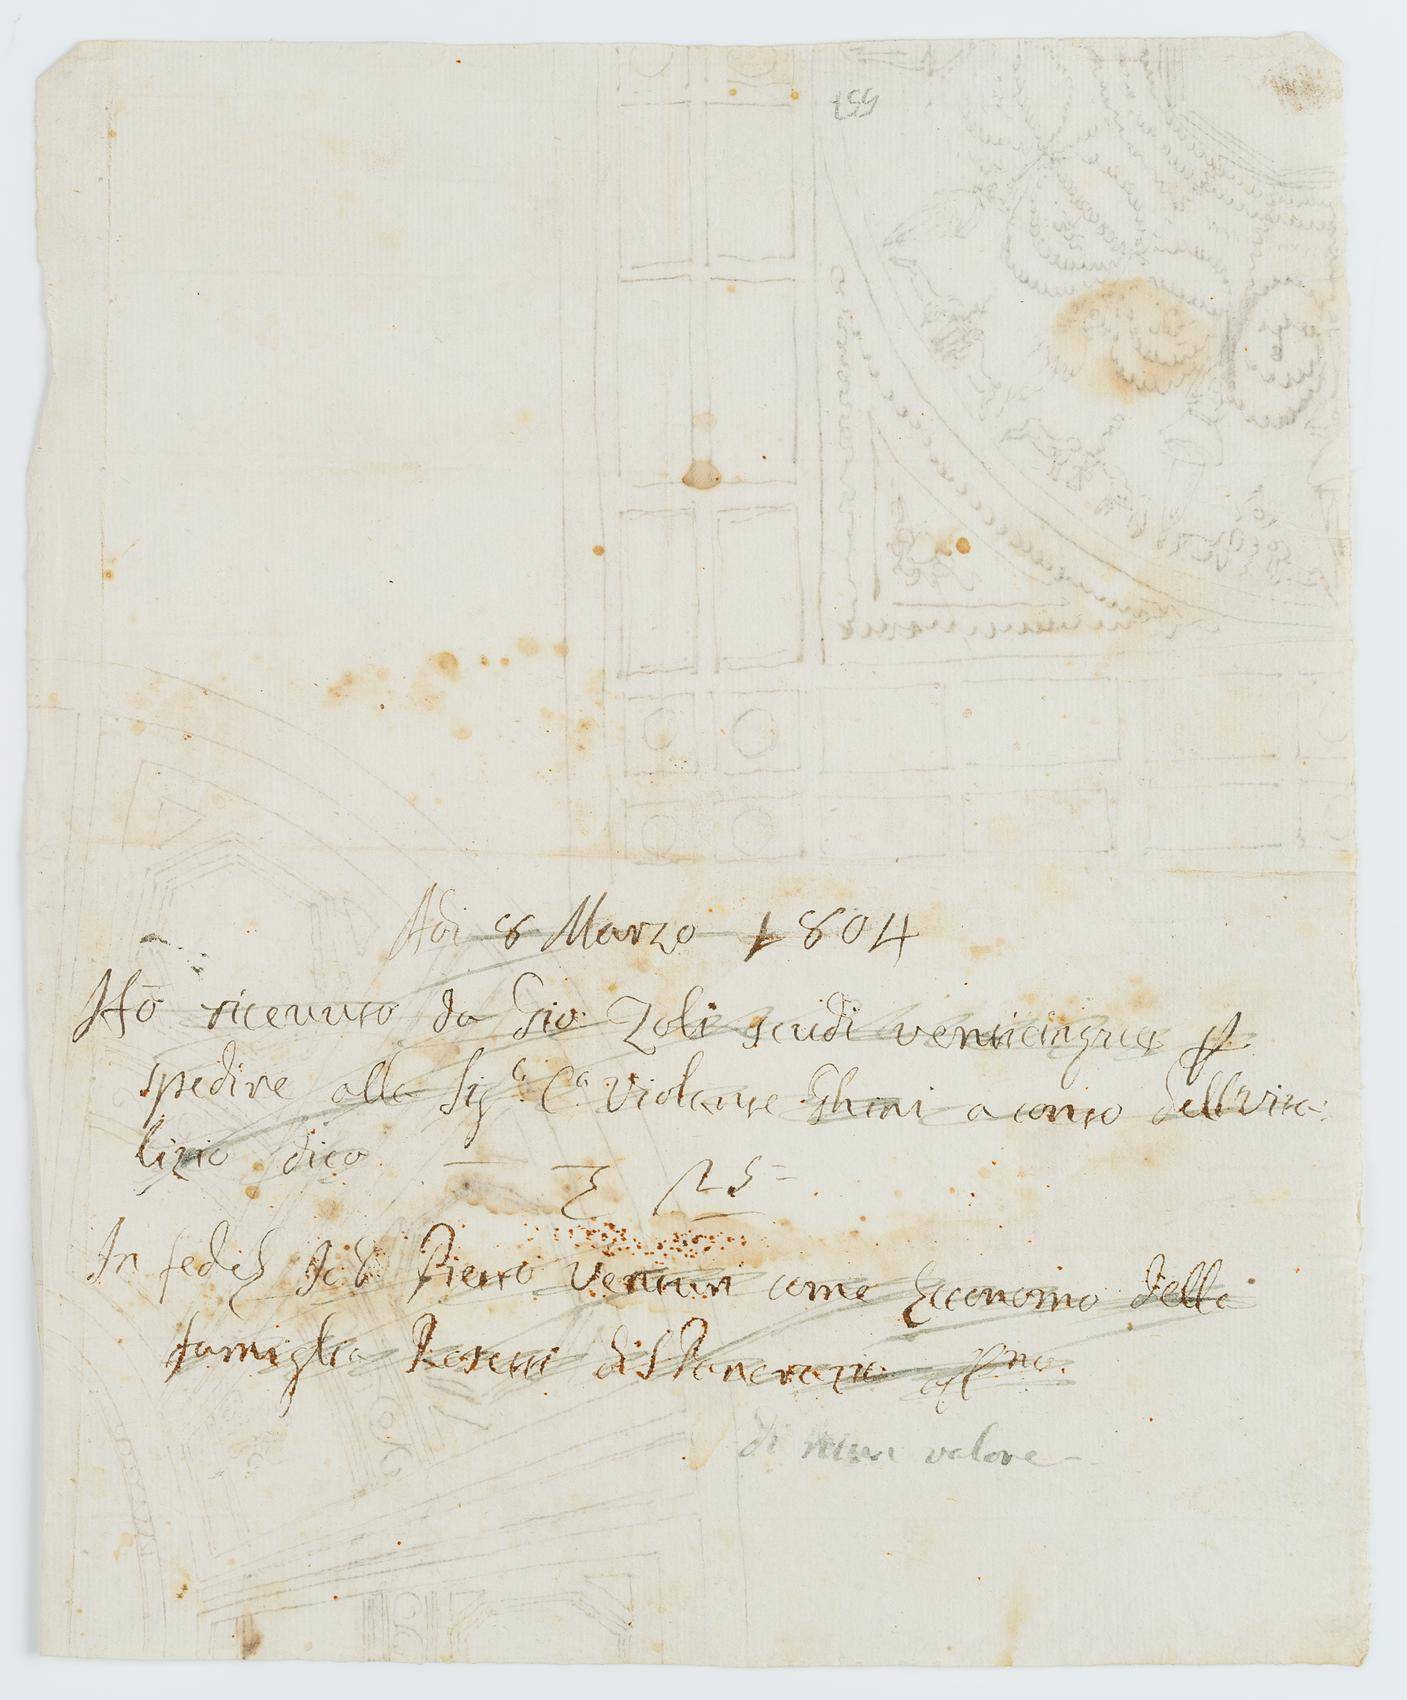 557
Adi 8 Marzo 1804
Hò ricevuto da Gio: Zoli scudi venticinque p
spedire alla Sig.ª C.ª Violante Ghini a conto dell Vita:
lizio dico — 25 =
In fede Io Pietro Venturi come Economo della
famiglia Rasetti di S Pancrazio
di niun valore